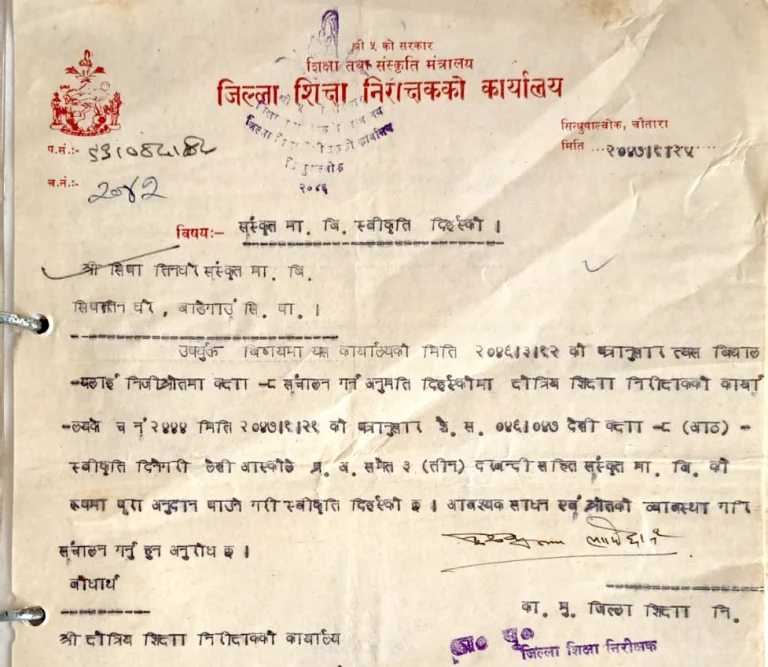 श्री ५ को सरकार
शिक्षा तथा संस्कृति मंत्रालय
जिल्ला शिक्षा निरीक्षकको कार्यालय
सिन्धुपाल्चोक, चौतारा
मिति २०४७।९।२५
प.सं.:-
च.नं.:- २०४२
जिल्ला शिक्षा
२०४६
विषय:- संस्कृत मा. बि. स्वीकृति दिईएको ।
श्री सिपा तिनघरे संस्कृत मा. बि.
सिपातिन घरे, बाडेगाउं सि. पा. ।
उपर्युक्त बिषयमा यस कार्यालयको मिति को पत्रानुसार त्यस बिद्याल
-यलाई निजीश्रोतमा कक्षा -८ संचालन गर्न अनुमति दिईएकोमा क्षेत्रिय शिक्षा निरीक्षकको कार्या
-लयके च नं २४४४ मिति को पत्रानुसार शै. स. ०४६।०४७ देखी कक्षा -८ (आठ) -
स्वीकृति दिनेगरी लेखी आएकोले प्र. अ. समेत ३ (तीन) दरबन्दी सहित संस्कृत मा. बि. को
रूपमा पुरा अनुदान पाउने गरी स्वीकृति दिईएको छ । आवश्यक साधन एवं श्रोतको व्यावस्था गरि
संचालन गर्नु हुन अनुरोध छ ।
बोधार्थ
का. मु. जिल्ला शिक्षा नि.
श्री क्षेत्रिय शिक्षा निरीक्षकको कार्यालय
जिल्ला शिक्षा निरीक्षक